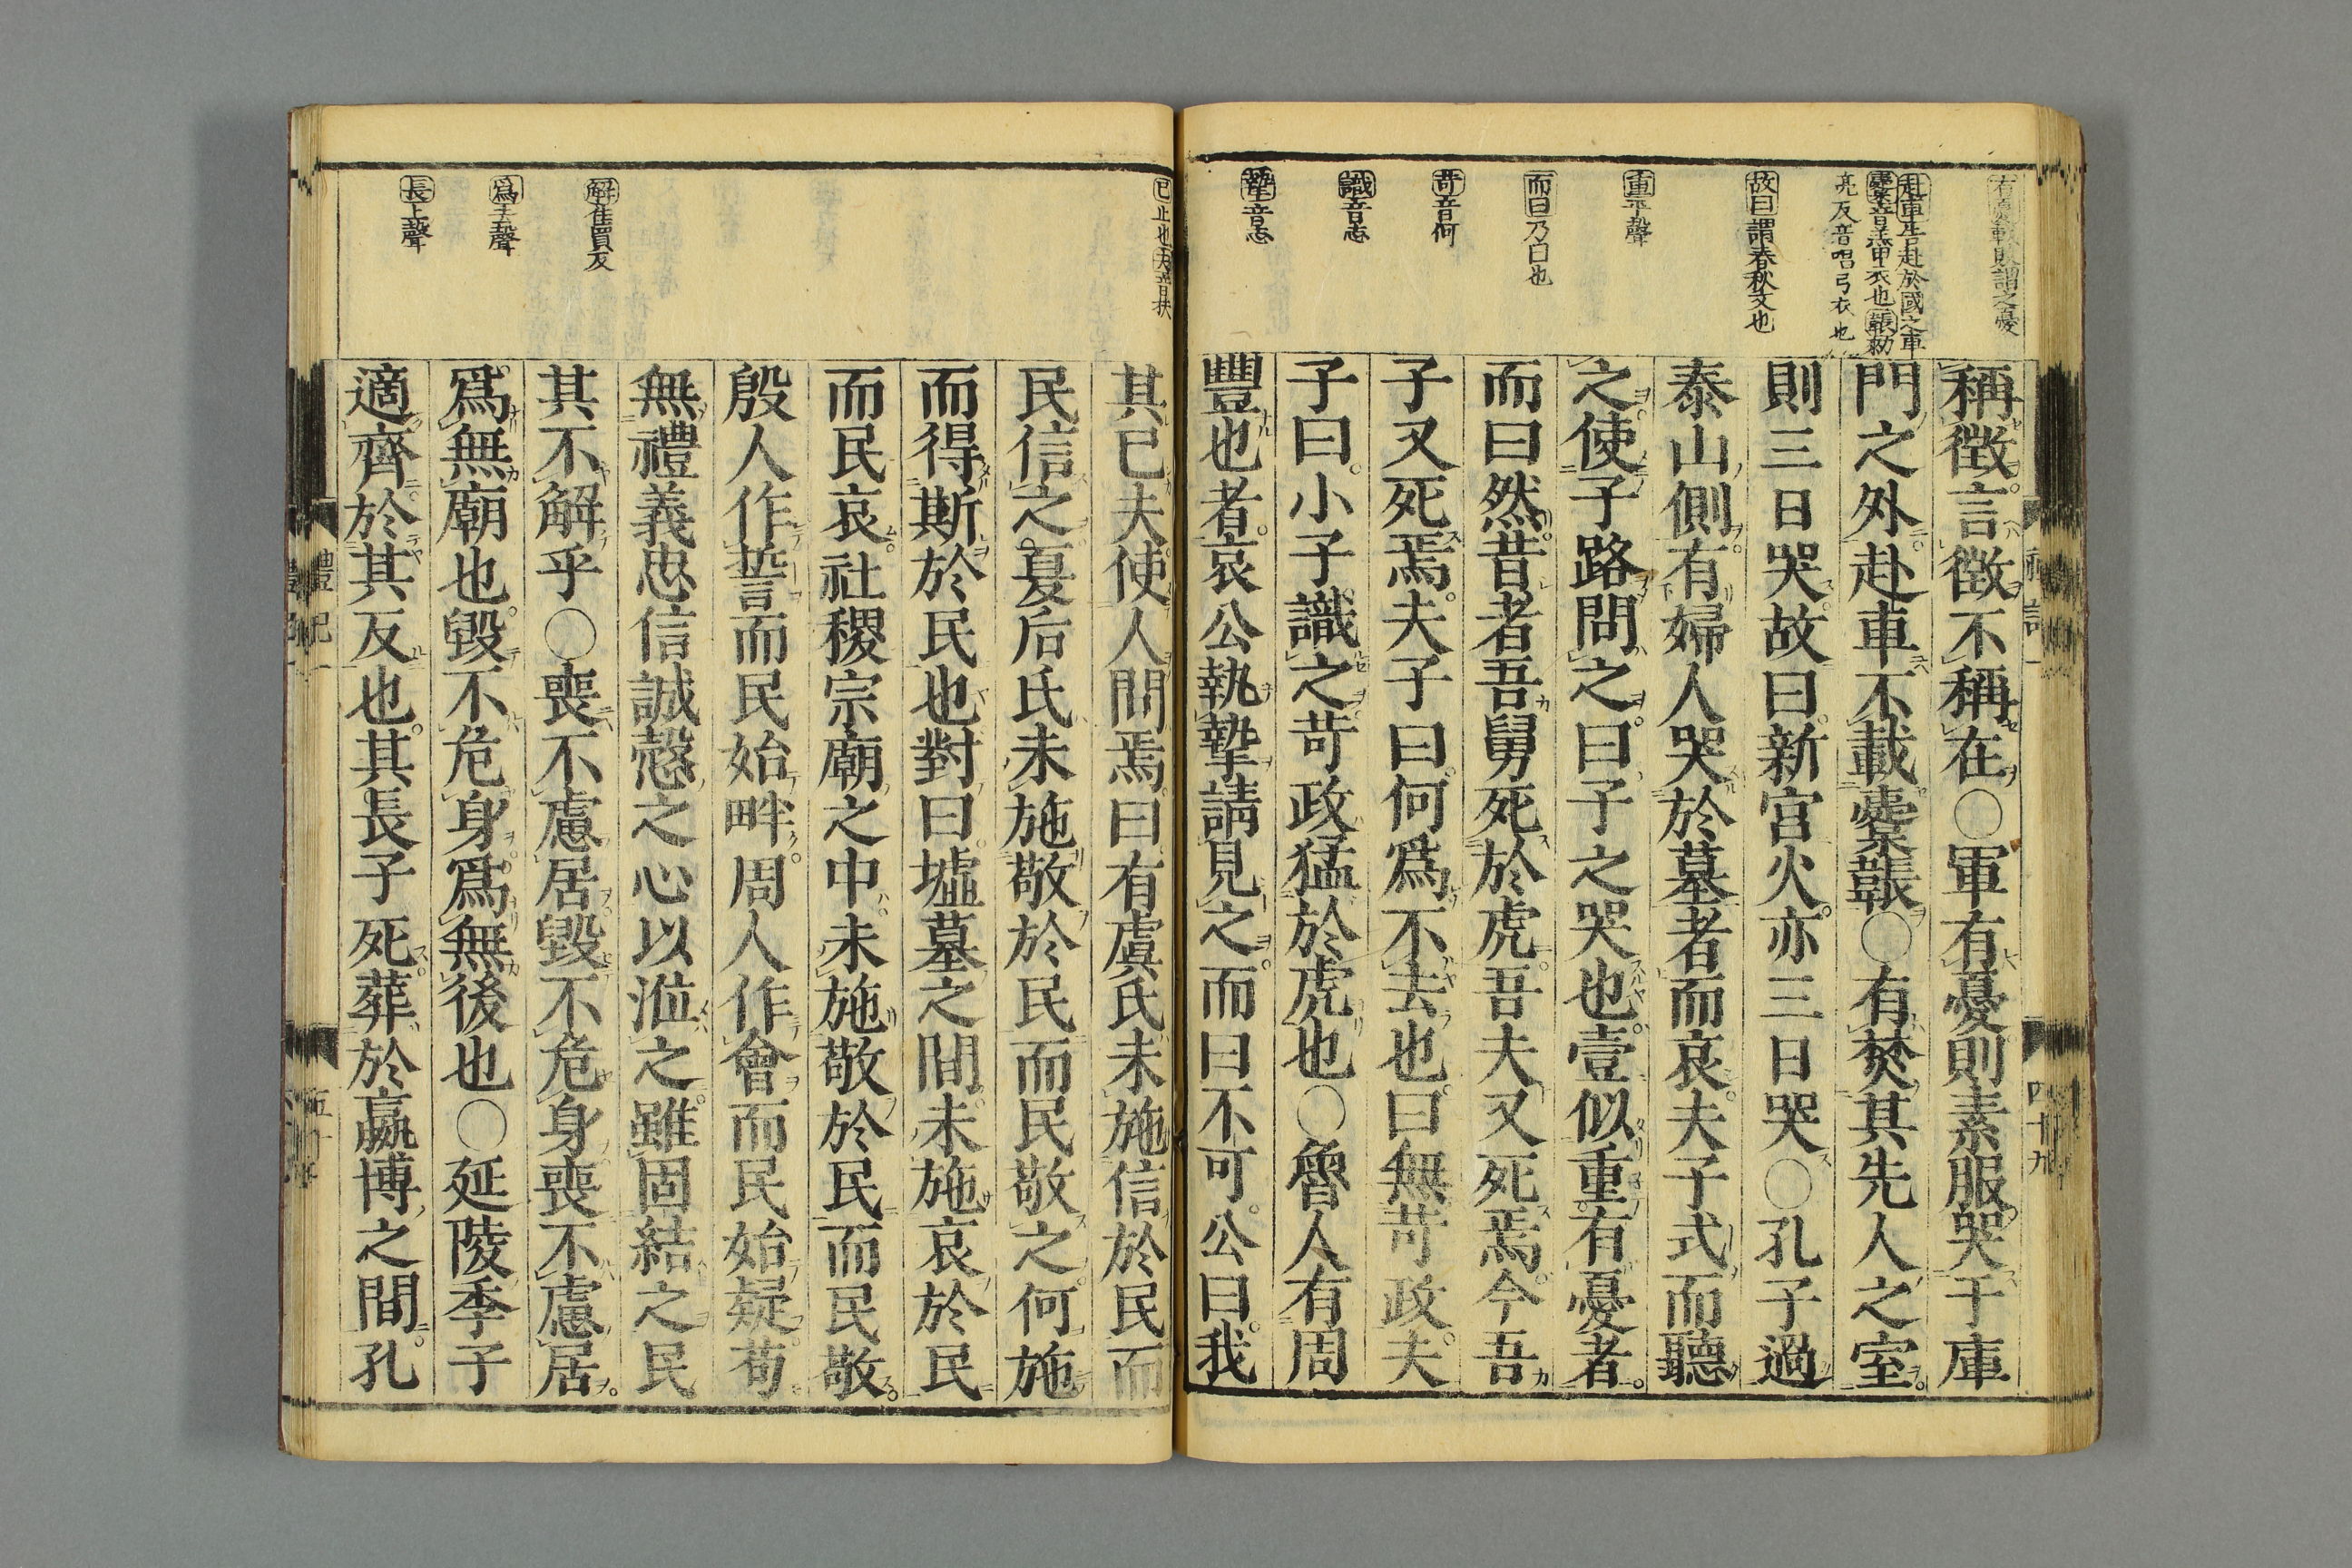 有憂軍敗謂之憂
赴車告赴於國之車
櫜音羔甲衣也韔勑
亮反音唱弓衣也
故曰謂春秋文也
重平聲
而曰乃曰也
苛音何
識音志
摯音志
稱徴言徴不稱在○軍有憂則素服哭于庫
門之外赴車不載櫜韔○有焚其先人之室
則三日哭故曰新宮火亦三日哭○孔子過
泰山側有婦人哭於墓者而哀夫子式而聽
之使子路問之曰子之哭也壹似重有憂者
而曰然昔者吾舅死於虎吾夫又死焉今吾
子又死焉夫子曰何爲不去也曰無苛政夫
子曰小子識之苛政猛於虎也○魯人有周
豐也者哀公執摯請見之而曰不可公曰我
禮記一
四十九
已止也夫音扶
解佳買反
爲去聲
長上聲
其已夫使人問焉曰有虞氏未施信於民而
民信之夏后氏未施敬於民而民敬之何施
而得斯於民也對曰墟墓之間未施哀於民
而民哀社稷宗廟之中未施敬於民而民敬
殷人作誓而民始畔周人作會而民始疑苟
無禮義忠信誠慤之心以涖之雖固結之民
其不解乎○喪不慮居毀不危身喪不慮居
爲無廟也毀不危身爲無後也○延陵季子
適齊於其反也其長子死葬於嬴博之間孔
禮記一
五十